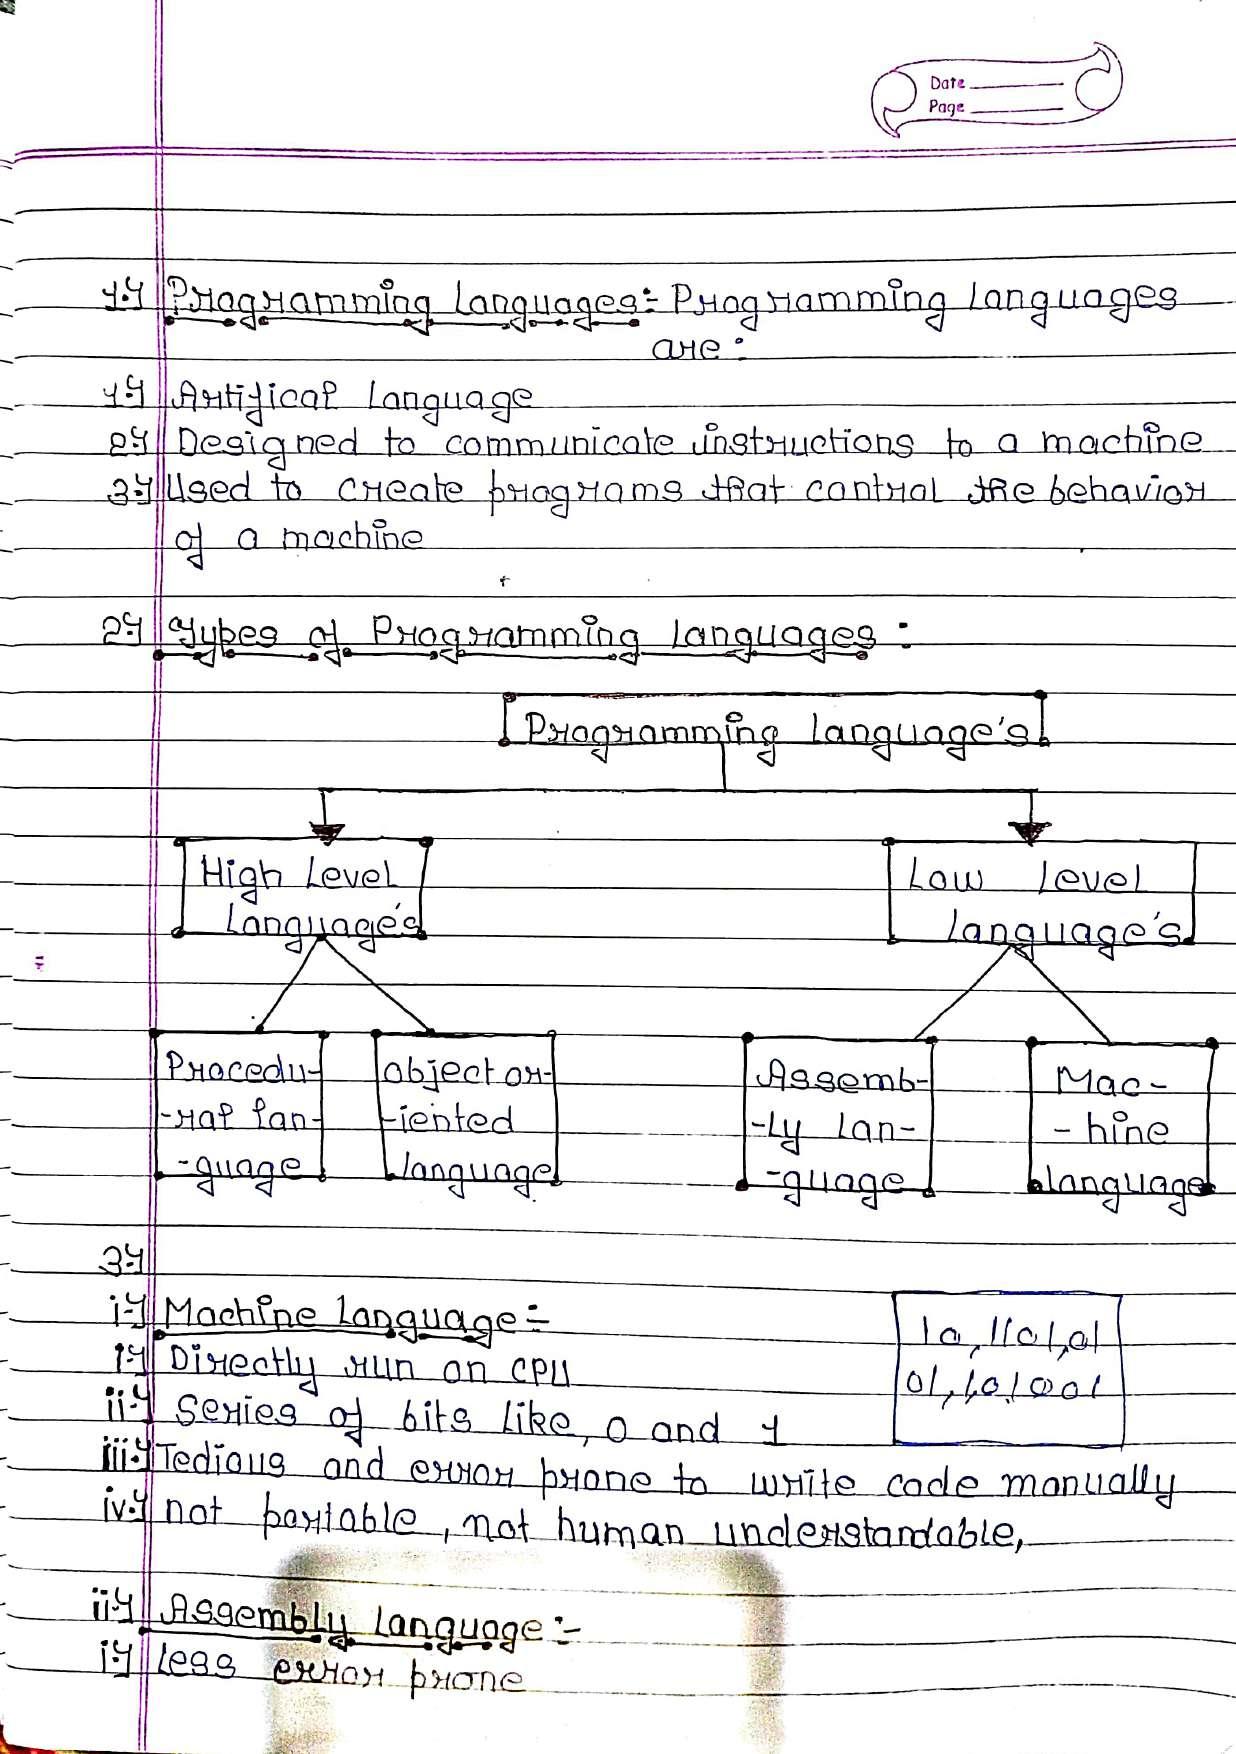 Date
Page
1.) Programming Languages:- Programming Languages
are :
1.) Artifical Language
2.) Designed to communicate instructions to a machine
3.) Used to create programs that control the behavior
of a machine
2.) Types of Programming Languages :
Programming Language's
High Level
Language's
Low Level
Language's
Procedu-
-ral lan-
-guage
object or-
-iented
language
Assemb-
-ly lan-
-guage
Mac-
-hine
language
3.)
i.) Machine Language:-
i.) Directly run on CPU
10, 1101, 01
01, 10, 1001
ii.) Series of bits like, 0 and 1
iii.) Tedious and error prone to write code manually
iv.) not portable, not human understandable,
ii.) Assembly Language:-
i.) Less error prone